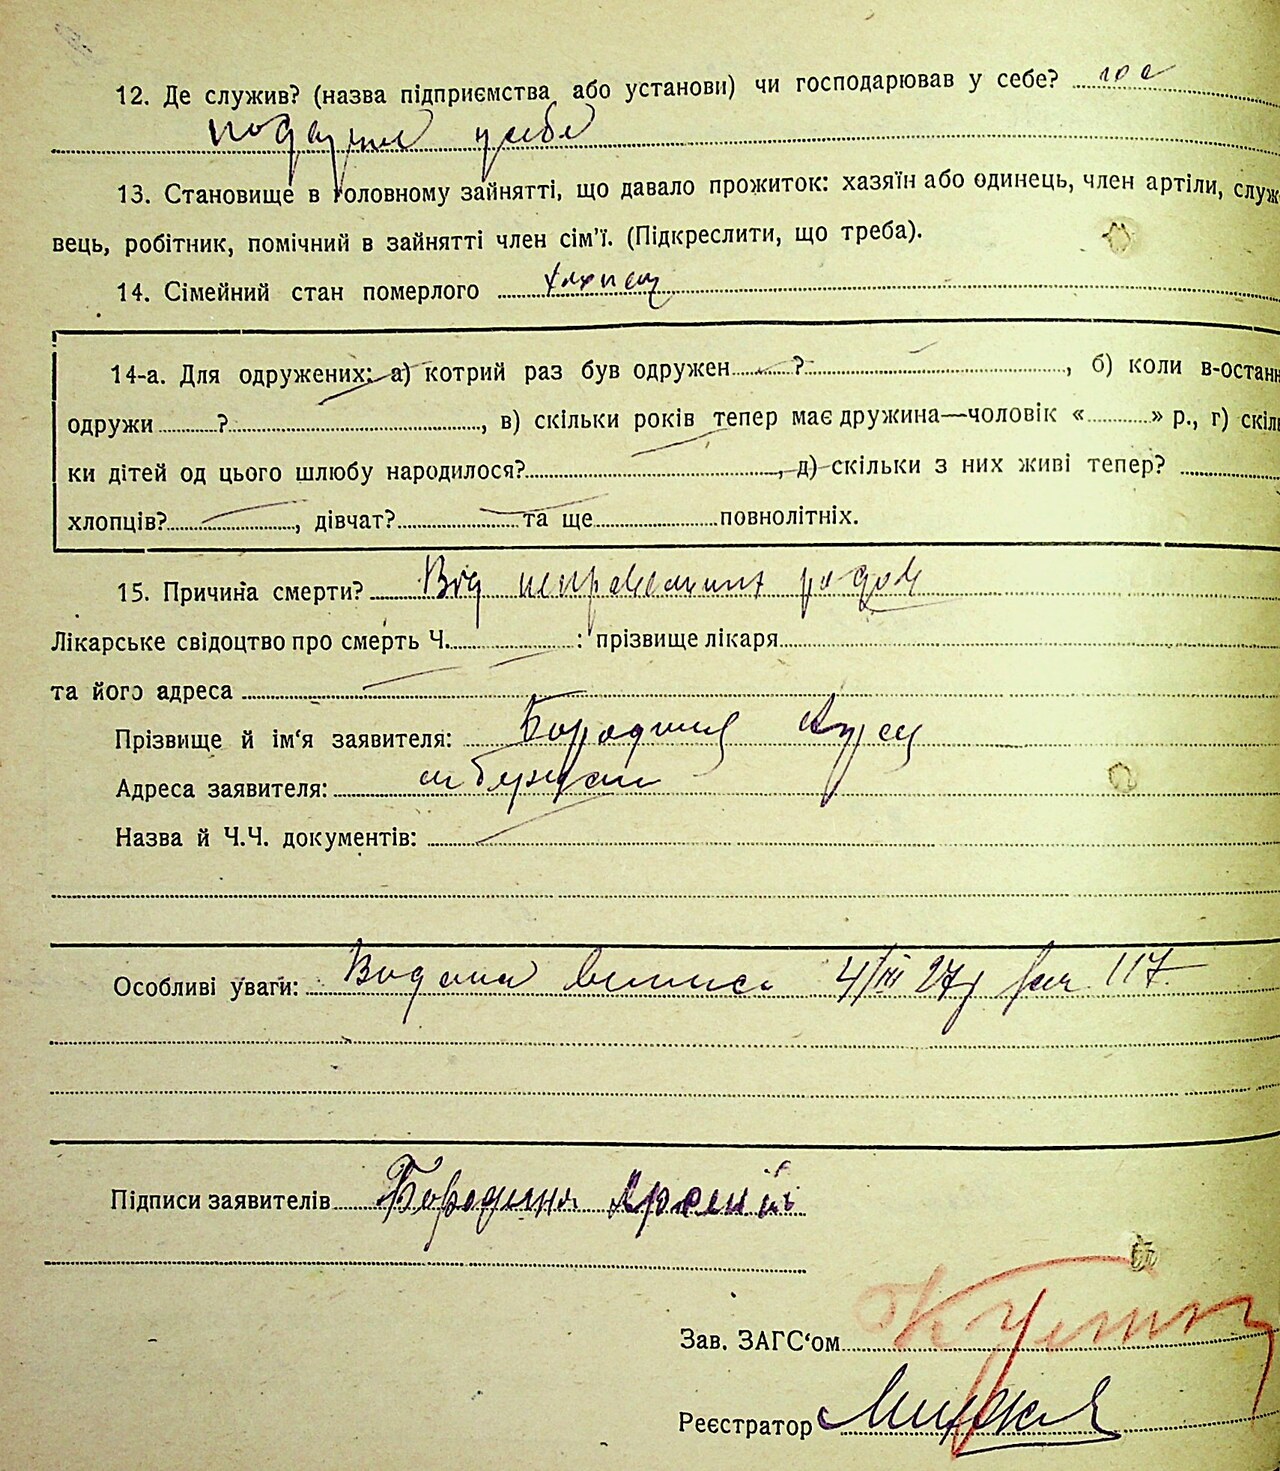 12. Де служив? (назва підприємства або установи) чи господарював у себе? гос
подарив у себе
13. Становище в головному зайнятті, що давало прожиток: хазяїн або одинець, член артіли, служ-
вець, робітник, помічний в зайнятті член сім'ї. (Підкреслити, що треба).
14. Сімейний стан померлого
14-а. Для одружених: а) котрий раз був одружен ? , б) коли в-останн
одружи ? , в) скільки років тепер має дружина—чоловік « » р., г) скіль
ки дітей од цього шлюбу народилося? , д) скільки з них живі тепер?
хлопців? , дівчат? та ще повнолітніх.
15. Причина смерти? Від неправильних родов
Лікарське свідоцтво про смерть Ч. : прізвище лікаря
та його адреса
Прізвище й ім'я заявителя: Бородиня Арсен
Адреса заявителя:
Назва й Ч.Ч. документів:
Особливі уваги: Видана виписа 4/III 27р 117
Підписи заявителів Бородиня Арсеній
Зав. ЗАГС'ом
Реєстратор